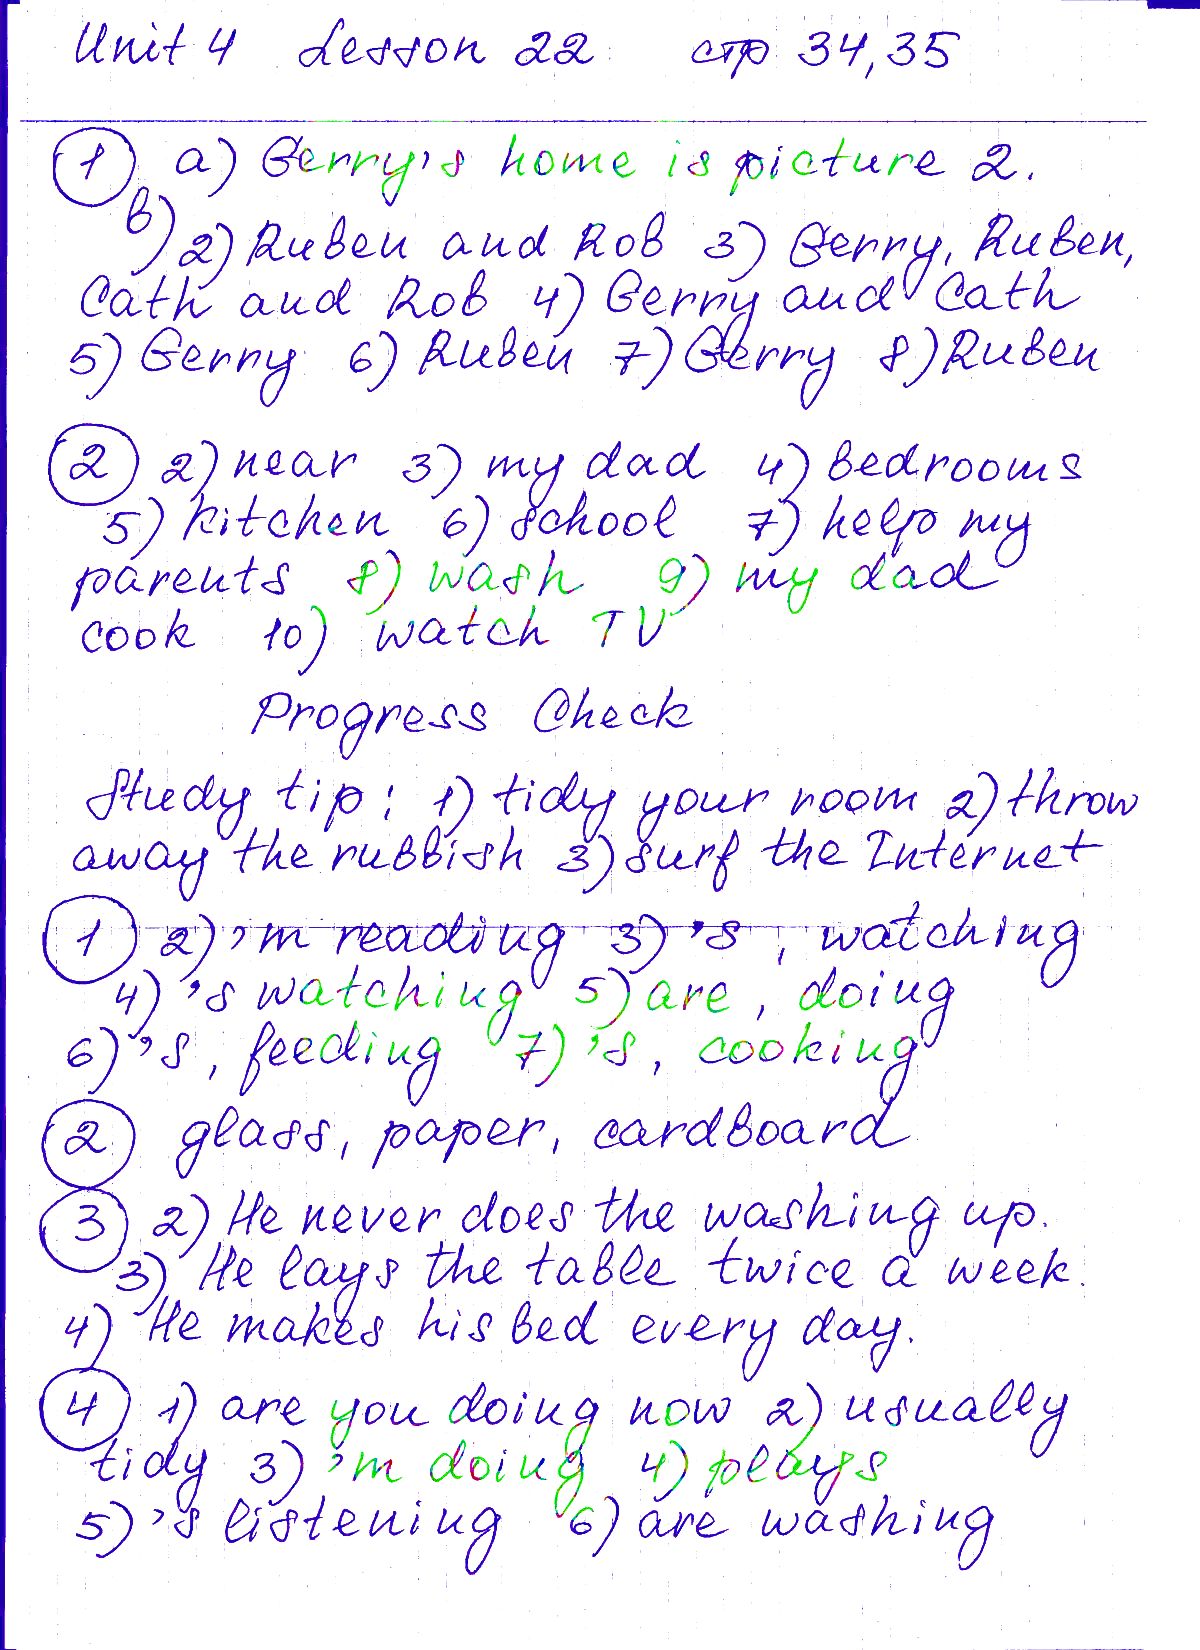 Unit 4 Lesson 22 стр 34, 35
1 a) Gerry's home is picture 2.
b) 2) Ruben and Rob 3) Gerry, Ruben,
Cath and Rob 4) Gerry and Cath
5) Gerry 6) Ruben 7) Gerry 8) Ruben
2 2) near 3) my dad 4) bedrooms
5) kitchen 6) school 7) help my
parents 8) wash 9) my dad
cook 10) watch TV
Progress Check
Study tip: 1) tidy your room 2) throw
away the rubbish 3) surf the Internet
1 2) 'm reading 3) 's, watching
4) 's watching 5) are, doing
6) 's, feeding 7) 's, cooking
2 glass, paper, cardboard
3 2) He never does the washing up.
3) He lays the table twice a week.
4) He makes his bed every day.
4 1) are you doing now 2) usually
tidy 3) 'm doing 4) plays
5) 's listening 6) are washing